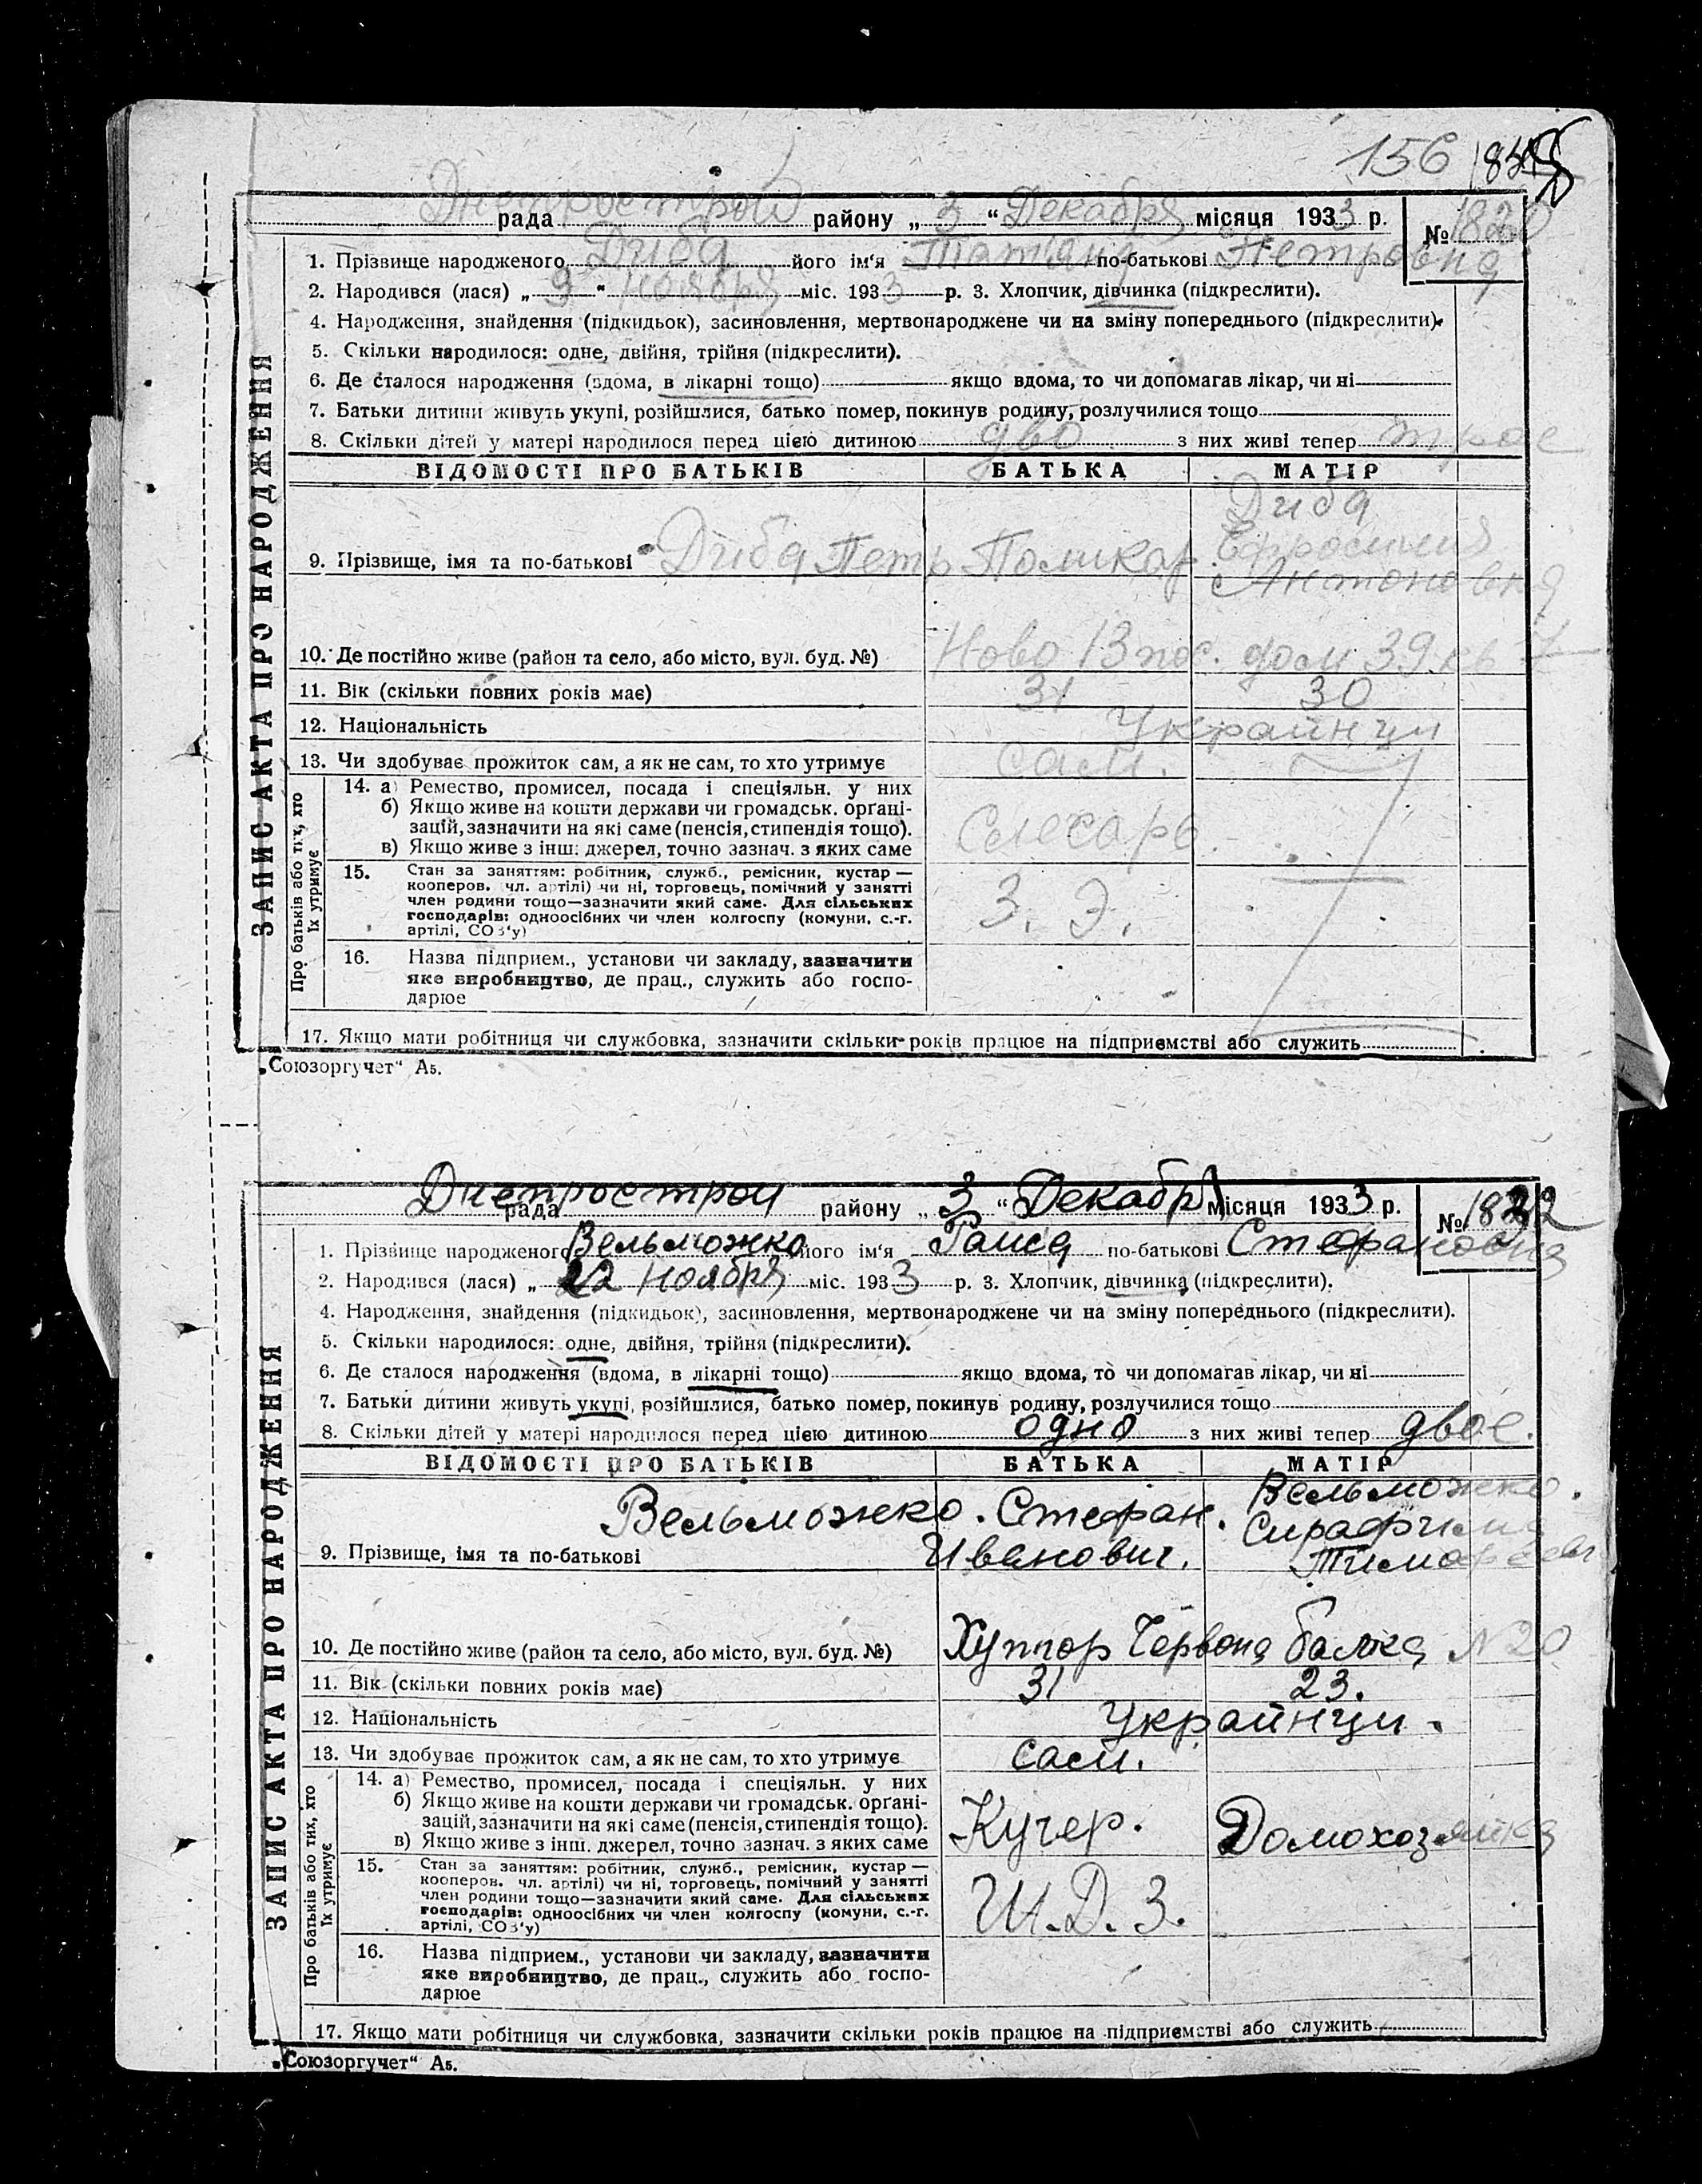 156
Днепрострой
рада району „ 3 “ Декабря місяця 1933 р. № 1820
1. Прізвище народженого Диба його ім'я Татяна по-батькові Петровна
2. Народився (лася) „ 9 “ ноября міс. 1933 р. 3. Хлопчик, дівчинка (підкреслити).
4. Народження, знайдення (підкидьок), засиновлення, мертвонароджене чи на зміну попереднього (підкреслити).
5. Скільки народилося: одне, двійня, трійня (підкреслити).
6. Де сталося народження (вдома, в лікарні тощо) якщо вдома, то чи допомагав лікар, чи ні
7. Батьки дитини живуть укупі, розійшлися, батько помер, покинув родину, розлучилися тощо
8. Скільки дітей у матері народилося перед цією дитиною дво з них живі тепер трое
ЗАПИС АКТА ПРО НАРОДЖЕННЯ
ВІДОМОСТІ ПРО БАТЬКІВ БАТЬКА МАТІР
Диба
9. Прізвище, імя та по-батькові Диба Петр Поликар Ефросиния
Антоновна
10. Де постійно живе (район та село, або місто, вул. буд. №) Ново 13 пос. дом 39 кв 7
11. Вік (скільки повних років має) 31 30
12. Національність Украйнци
13. Чи здобуває прожиток сам, а як не сам, то хто утримує сам.
Про батьків або тих, хто їх утримує
14. а) Ремество, промисел, посада і спеціяльн. у них
б) Якщо живе на кошти держави чи громадськ. орґані-
зацій, зазначити на які саме (пенсія, стипендія тощо). Слесарь
в) Якщо живе з інш. джерел, точно зазнач. з яких саме
15. Стан за заняттям: робітник, служб., ремісник, кустар —
кооперов. чл. артілі) чи ні, торговець, помічний у занятті
член родини тощо—зазначити який саме. Для сільських З. Э.
господарів: одноосібних чи член колгоспу (комуни, с.-г.
артілі, СОЗ'у)
16. Назва підприєм., установи чи закладу, зазначити
яке виробництво, де прац., служить або госпо-
дарює
17. Якщо мати робітниця чи службовка, зазначити скільки років працює на підприємстві або служить
„Союзоргучет“ А5.
Днепрострой
рада району „ 3 “ Декабря місяця 1933 р. №
1. Прізвище народженого Вельможко його ім'я Раиса по-батькові Стефановна
2. Народився (лася) „ 22 ноября міс. 1933 р. 3. Хлопчик, дівчинка (підкреслити).
4. Народження, знайдення (підкидьок), засиновлення, мертвонароджене чи на зміну попереднього (підкреслити).
5. Скільки народилося: одне, двійня, трійня (підкреслити).
6. Де сталося народження (вдома, в лікарні тощо) якщо вдома, то чи допомагав лікар, чи ні
7. Батьки дитини живуть укупі, розійшлися, батько помер, покинув родину, розлучилися тощо
8. Скільки дітей у матері народилося перед цією дитиною одно з них живі тепер двое.
ЗАПИС АКТА ПРО НАРОДЖЕННЯ
ВІДОМОСТІ ПРО БАТЬКІВ БАТЬКА МАТІР
Вельможко. Стефан. Вельможко.
Сирафима
9. Прізвище, імя та по-батькові Иванович. Тимофеевн
10. Де постійно живе (район та село, або місто, вул. буд. №) Хуттор Червона балка N 20
11. Вік (скільки повних років має) 31 23.
12. Національність Украйнци.
13. Чи здобуває прожиток сам, а як не сам, то хто утримує сам.
Про батьків або тих, хто їх утримує
14. а) Ремество, промисел, посада і спеціяльн. у них
б) Якщо живе на кошти держави чи громадськ. орґані-
зацій, зазначити на які саме (пенсія, стипендія тощо). Кучер. Домохозяйка
в) Якщо живе з інш. джерел, точно зазнач. з яких саме
15. Стан за заняттям: робітник, служб., ремісник, кустар —
кооперов. чл. артілі) чи ні, торговець, помічний у занятті
член родини тощо—зазначити який саме. Для сільських Ш. Д. З.
господарів: одноосібних чи член колгоспу (комуни, с.-г.
артілі, СОЗ'у)
16. Назва підприєм., установи чи закладу, зазначити
яке виробництво, де прац., служить або госпо-
дарює
17. Якщо мати робітниця чи службовка, зазначити скільки років працює на підприємстві або служить
„Союзоргучет“ А5.